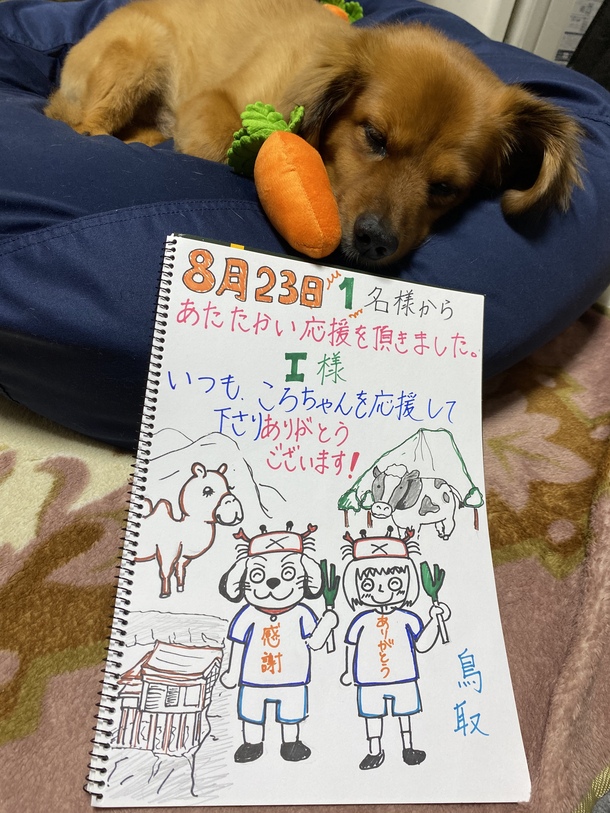 8月23日1名様から
あたたかい応援を頂きました。
I様
いつも、ころちゃんを応援して
下さりありがとう
ございます!
感謝
ありがとう
鳥取